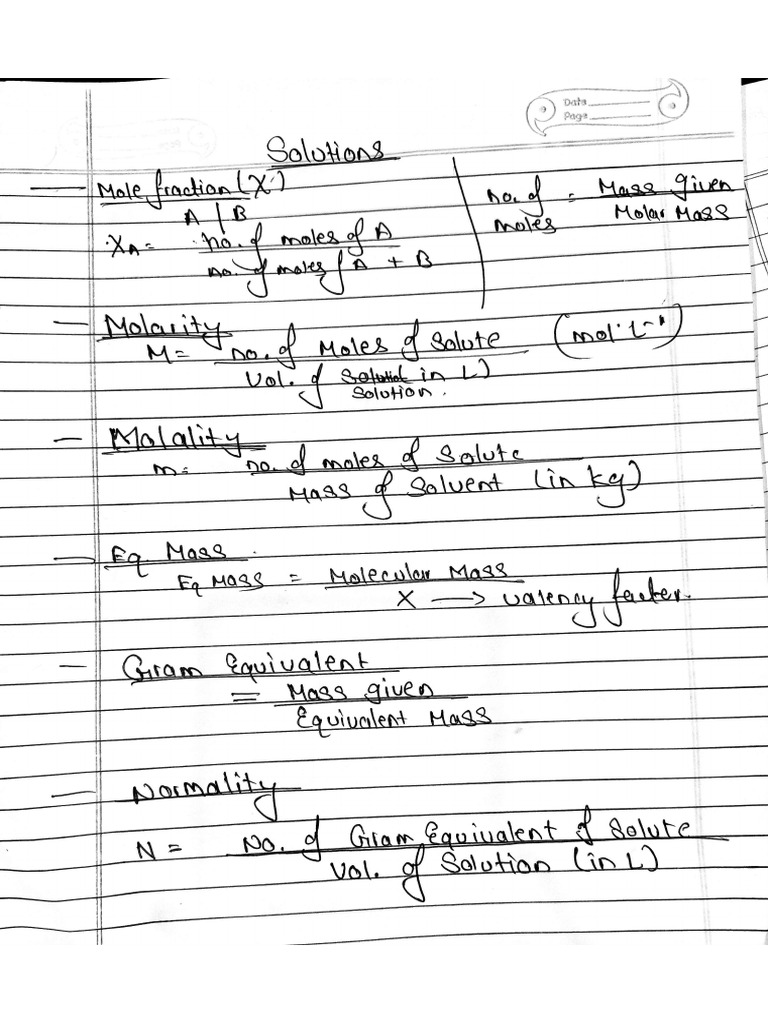 Date
Page
Solutions
Mole fraction (X)
A | B
XA = no. of moles of A
no. of moles of A + B
no. of moles = Mass given
Molar Mass
Molarity
M = no. of Moles of Solute (mol L-1)
Vol. of in L)
Solution.
Molality
m = no. of moles of Solute
Mass of Solvent (in kg)
Eq Mass
Eq Mass = Molecular Mass
X → valency factor.
Gram Equivalent
= Mass given
Equivalent Mass
Normality
N = No. of Gram Equivalent of Solute
Vol. of Solution (in L)